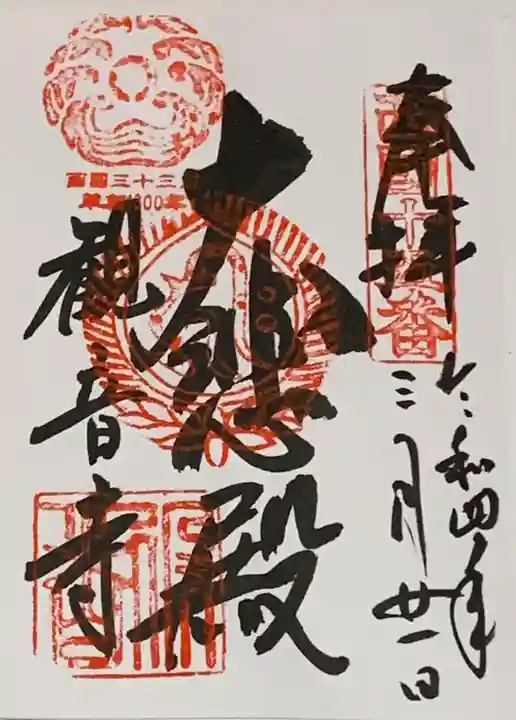 奉拝
西国十五番
令和四年
三月廿一日
大悲殿
西国三十三
草創1300年
観音寺